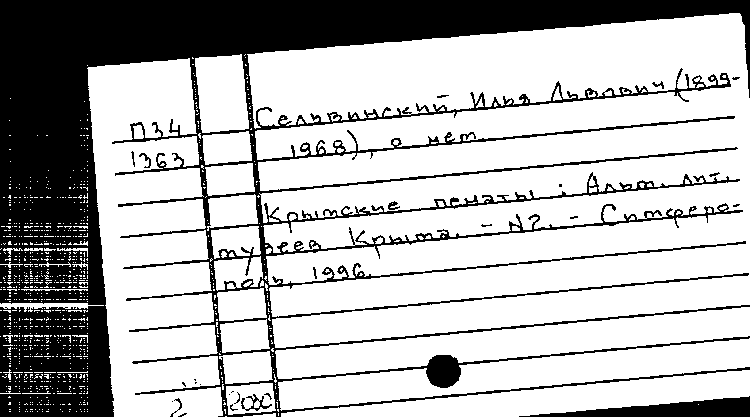 П34 Сельвинский, Илья Львович (1899-
1363 1968), о нем.
Крымские пенаты : Альм. лит.
музеев Крыма. - N2. - Симферо-
поль, 1996.
2 2000